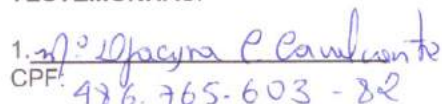 TESTEMUNHAS:
1. Mª Djacyra C. Cavalcante
CPF: 486.765.603-82